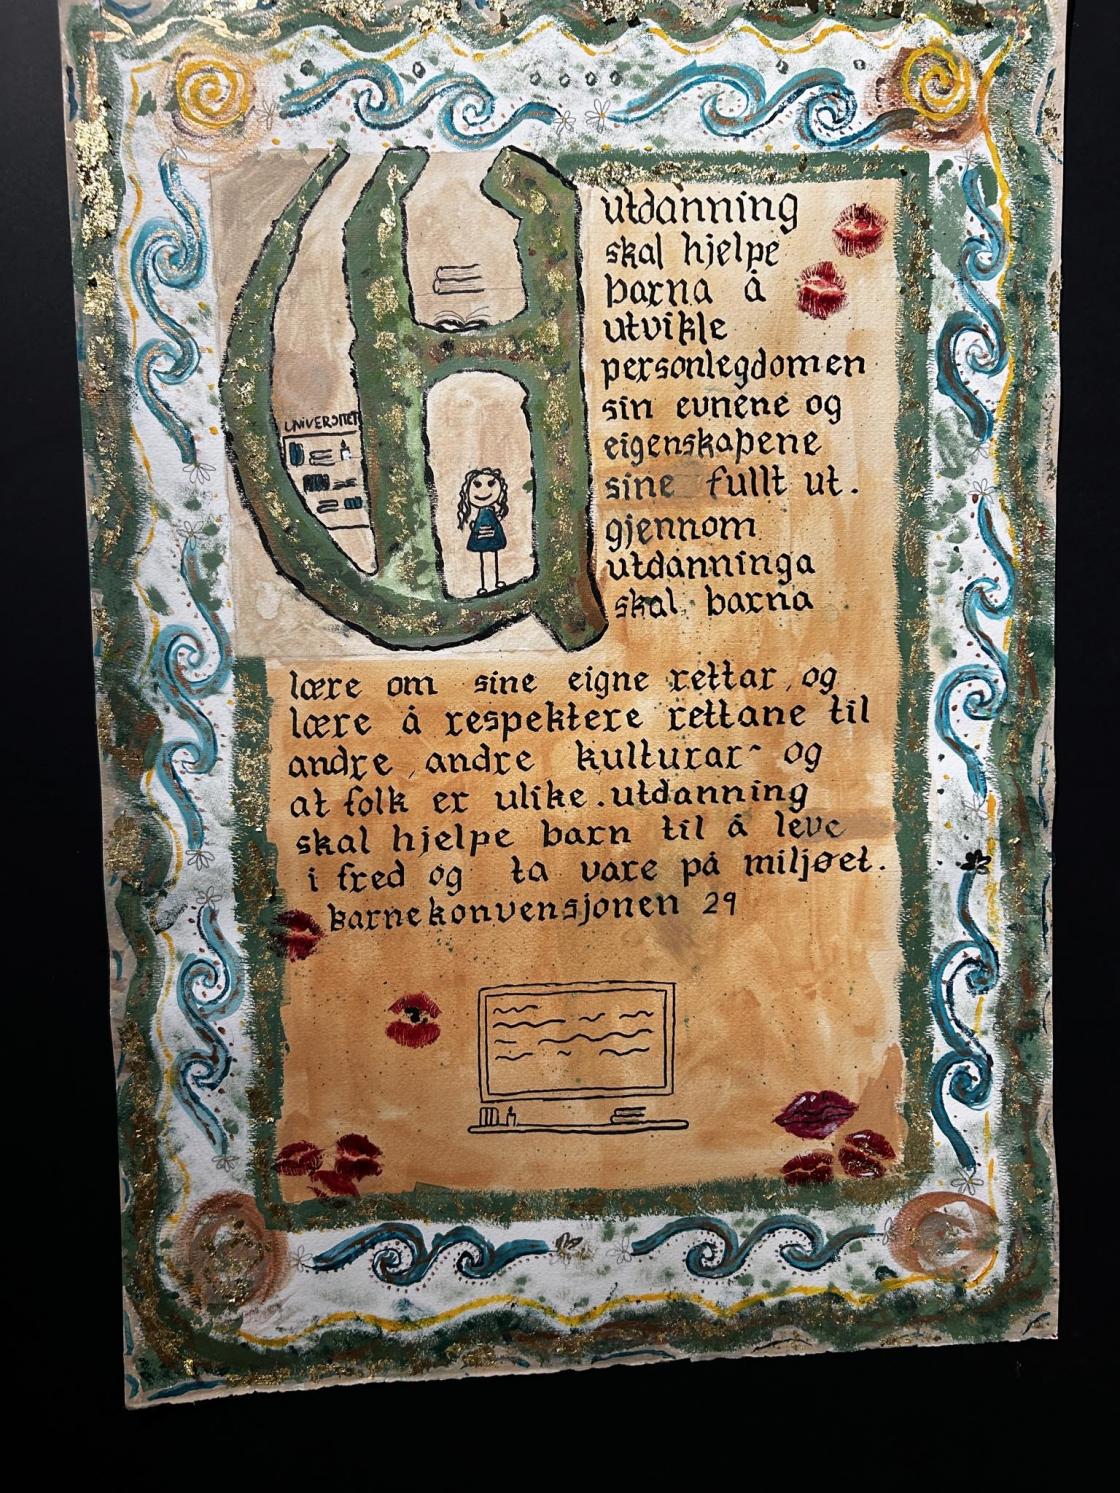 utdanning
skal hjelpe
barna å
utvikle
personlegdomen
sin evnene og
eigenskapene
sine fullt ut.
gjennom
utdanninga
skal barna
UNIVERSITET
lære om sine eigne rettar, og
lære å respektere rettane til
andre, andre kulturar og
at folk er ulike. utdanning
skal hjelpe barn til å leve
i fred og ta vare på miljøet.
Barnekonvensjonen 29